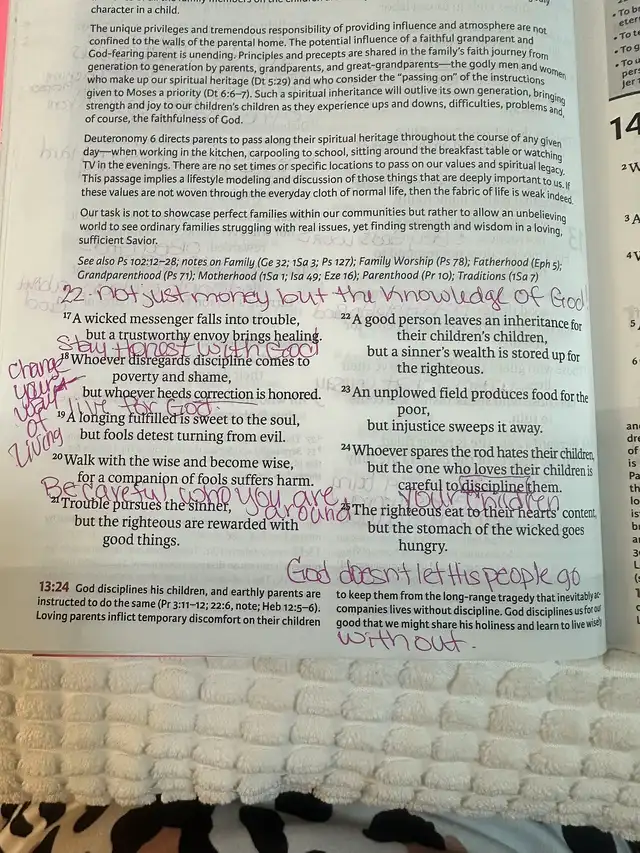 character in a child.
The unique privileges and tremendous responsibility of providing influence and atmosphere are not
confined to the walls of the parental home. The potential influence of a faithful grandparent and
God-fearing parent is unending. Principles and precepts are shared in the family's faith journey from
generation to generation by parents, grandparents, and great-grandparents—the godly men and women
who make up our spiritual heritage (Dt 5:29) and who consider the "passing on" of the instructions
given to Moses a priority (Dt 6:6–7). Such a spiritual inheritance will outlive its own generation, bringing
strength and joy to our children's children as they experience ups and downs, difficulties, problems and,
of course, the faithfulness of God.
Deuteronomy 6 directs parents to pass along their spiritual heritage throughout the course of any given
day—when working in the kitchen, carpooling to school, sitting around the breakfast table or watching
TV in the evenings. There are no set times or specific locations to pass on our values and spiritual legacy.
This passage implies a lifestyle modeling and discussion of those things that are deeply important to us. If
these values are not woven through the everyday cloth of normal life, then the fabric of life is weak indeed.
Our task is not to showcase perfect families within our communities but rather to allow an unbelieving
world to see ordinary families struggling with real issues, yet finding strength and wisdom in a loving,
sufficient Savior.
See also Ps 102:12–28; notes on Family (Ge 32; 1Sa 3; Ps 127); Family Worship (Ps 78); Fatherhood (Eph 5);
Grandparenthood (Ps 71); Motherhood (1Sa 1; Isa 49; Eze 16); Parenthood (Pr 10); Traditions (1Sa 7)
22. not just money but the knowledge of God!
17 A wicked messenger falls into trouble,
but a trustworthy envoy brings healing.
Stay honest with God
18 Whoever disregards discipline comes to
poverty and shame,
but whoever heeds correction is honored.
Change
your
way
of
living
live for God.
19 A longing fulfilled is sweet to the soul,
but fools detest turning from evil.
20 Walk with the wise and become wise,
for a companion of fools suffers harm.
Be careful who you are
around
21 Trouble pursues the sinner,
but the righteous are rewarded with
good things.
22 A good person leaves an inheritance for
their children's children,
but a sinner's wealth is stored up for
the righteous.
23 An unplowed field produces food for the
poor,
but injustice sweeps it away.
24 Whoever spares the rod hates their children,
but the one who loves their children is
careful to discipline them.
your children
25 The righteous eat to their hearts' content,
but the stomach of the wicked goes
hungry.
God doesn't let His people go
without.
13:24 God disciplines his children, and earthly parents are
instructed to do the same (Pr 3:11–12; 22:6, note; Heb 12:5–6).
Loving parents inflict temporary discomfort on their children
to keep them from the long-range tragedy that inevitably ac-
companies lives without discipline. God disciplines us for our
good that we might share his holiness and learn to live wisely
14